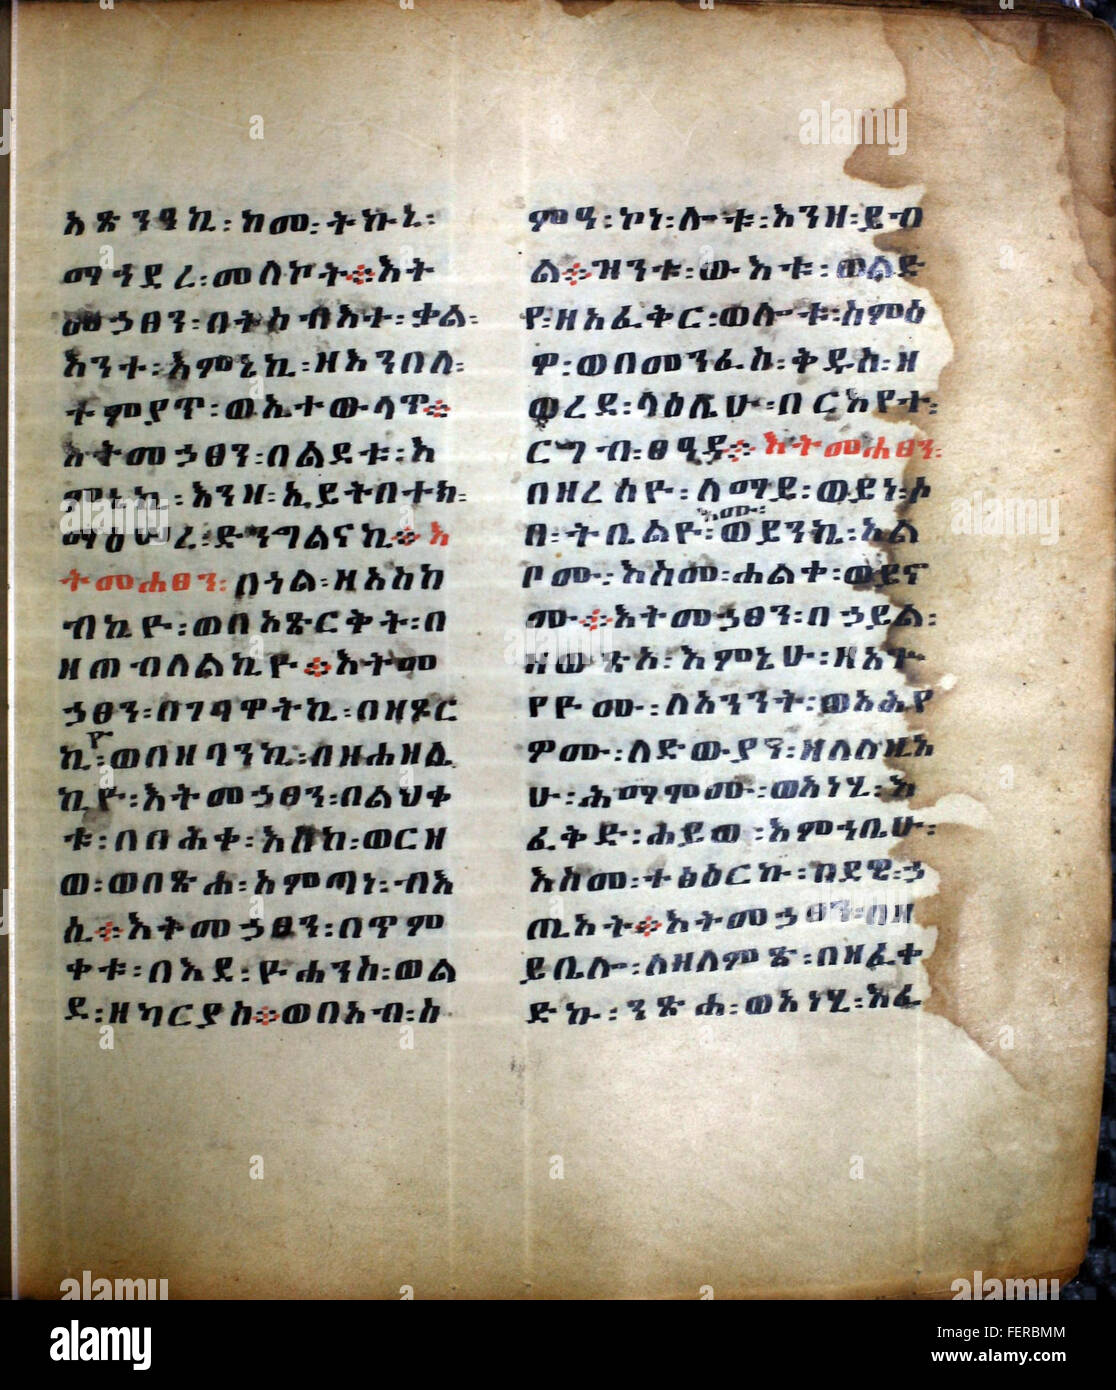 አጽንዓኪ፡ከመ፡ትኩኒ፡
ማኅደረ፡መለኮት፨እት
መኃፀን፡በትስብእተ፡ቃል፡
እንተ፡እምኔኪ፡ዘእንበለ፡
ተምያጥ፡ወኢተውላጥ፨
እትመኃፀን፡በልደቱ፡እ
ምኔኪ፡እንዘ፡ኢይትበተክ፡
ማዕሠረ፡ድንግልናኪ፨እ
ትመሐፀን፡በኀል፡ዘአስከ
ብኪዮ፡ወበአጽርቅት፡በ
ዘጠብለልኪዮ፨እትመ
ኃፀን፡በገባዋትኪ፡በዘጾር
ኪዮ፡ወበዘባንኪ፡በዘሐዘል
ኪዮ፡እትመኃፀን፡በልህቀ
ቱ፡በበሕቀ፡እስከ፡ወርዘ
ወ፡ወበጽሐ፡እምጣነ፡ብእ
ሲ፨እትመኃፀን፡በጥም
ቀቱ፡በእደ፡ዮሐንስ፡ወል
ደ፡ዘካርያስ፨ወበአብ፡ስ
ምዓ፡ኮነ፡ሎቱ፡እንዘ፡ይብ
ል፨ዝንቱ፡ውእቱ፡ወልድ
የ፡ዘአፈቅር፡ወሎቱ፡ስምዕ
ዎ፡ወበመንፈስ፡ቅዱስ፡ዘ
ወረደ፡ላዕሌሁ፡በርእየተ፡
ርግብ፡ፀዓዳ፨እትመሐፀን፡
በዘረስዮ፡ለማይ፡ወይነ፡ሶ
በ፡ትቤልዮ፡እሙ፡ወይንኪ፡አል
ቦሙ፡እስመ፡ሐልቀ፡ወይኖ
ሙ፨እትመኃፀን፡በኃይል፡
ዘወጽአ፡እምኔሁ፡ዘአዕ
የዮሙ፡ለእንንት፡ወአሕየ
ዎሙ፡ለድውያን፡ዘለለዚአ
ሁ፡ሕማምሙ፡ወአነሂ፡እ
ፈቅድ፡ሐይወ፡እምኀቤሁ፡
እስመ፡ተፅዕርኩ፡በደዌ፡ኃ
ጢአት፨እትመኃፀን፡በዘ
ይቤሎ፡ለዘለምጽ፡በዘፈቀ
ድኩ፡ንጽሐ፡ወአነሂ፡እፈ
alamy
FERBMM
www.alamy.com